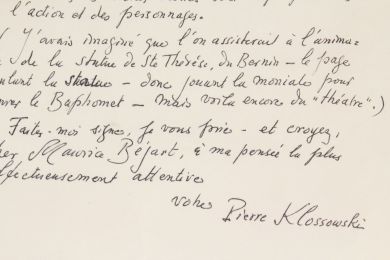 l'action et des personnages.
( J'avais imaginé que l'on assisterait à l'anima-
de la statue de Ste Thérèse, du Bernin – le page
la statue – donc jouant la moniales pour
le Baphomet – mais voilà encore du "théâtre".)
Faites-moi signes, je vous prie – et croyez,
Maurice Béjart, à ma pensée la plus
attentive
votre Pierre Klossowski